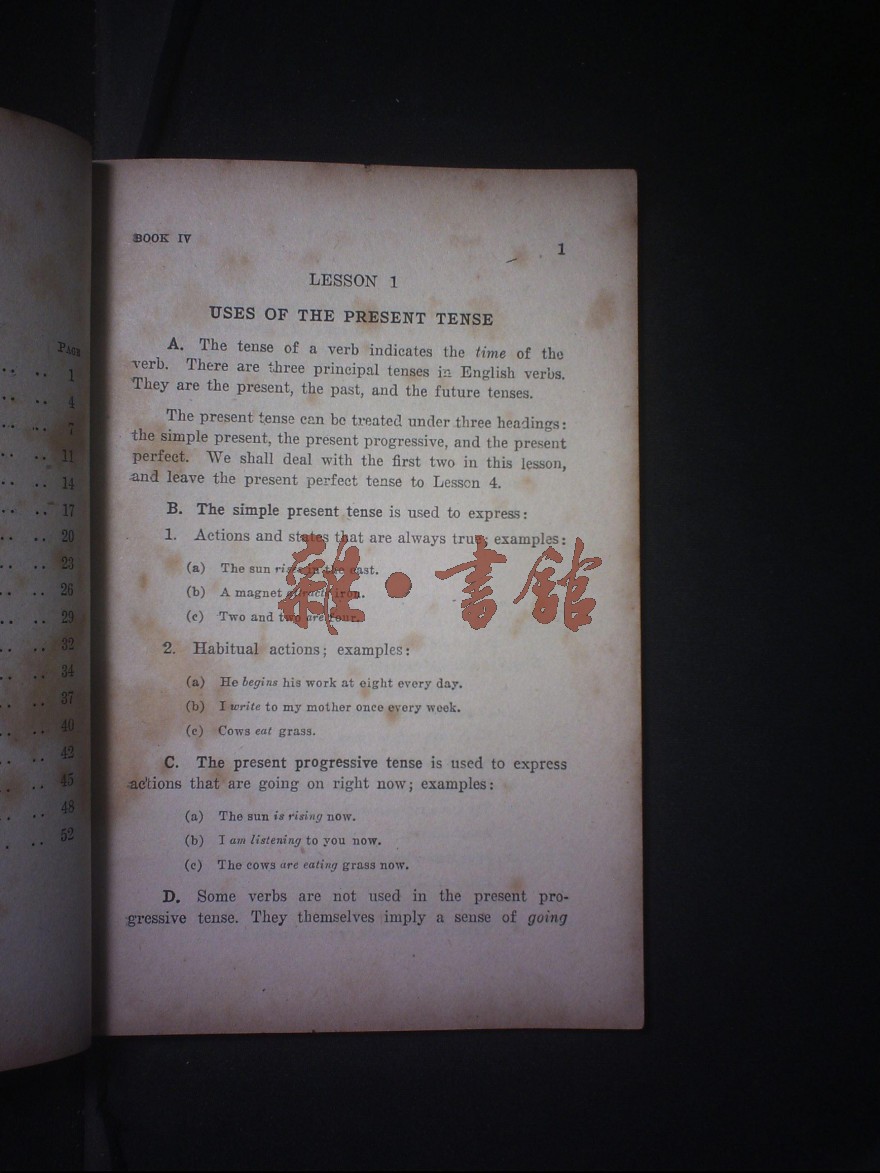 PAGE
1
4
7
11
14
17
20
23
26
29
32
34
37
40
42
45
48
52
BOOK IV
1
LESSON 1
USES OF THE PRESENT TENSE
A. The tense of a verb indicates the time of the
verb. There are three principal tenses in English verbs.
They are the present, the past, and the future tenses.
The present tense can be treated under three headings:
the simple present, the present progressive, and the present
perfect. We shall deal with the first two in this lesson,
and leave the present perfect tense to Lesson 4.
B. The simple present tense is used to express:
1. Actions and states that are always true; examples:
(a) The sun rises in the east.
(b) A magnet attracts iron.
(c) Two and two are four.
雜·書館
2. Habitual actions; examples:
(a) He begins his work at eight every day.
(b) I write to my mother once every week.
(c) Cows eat grass.
C. The present progressive tense is used to express
actions that are going on right now; examples:
(a) The sun is rising now.
(b) I am listening to you now.
(c) The cows are eating grass now.
D. Some verbs are not used in the present pro-
gressive tense. They themselves imply a sense of going